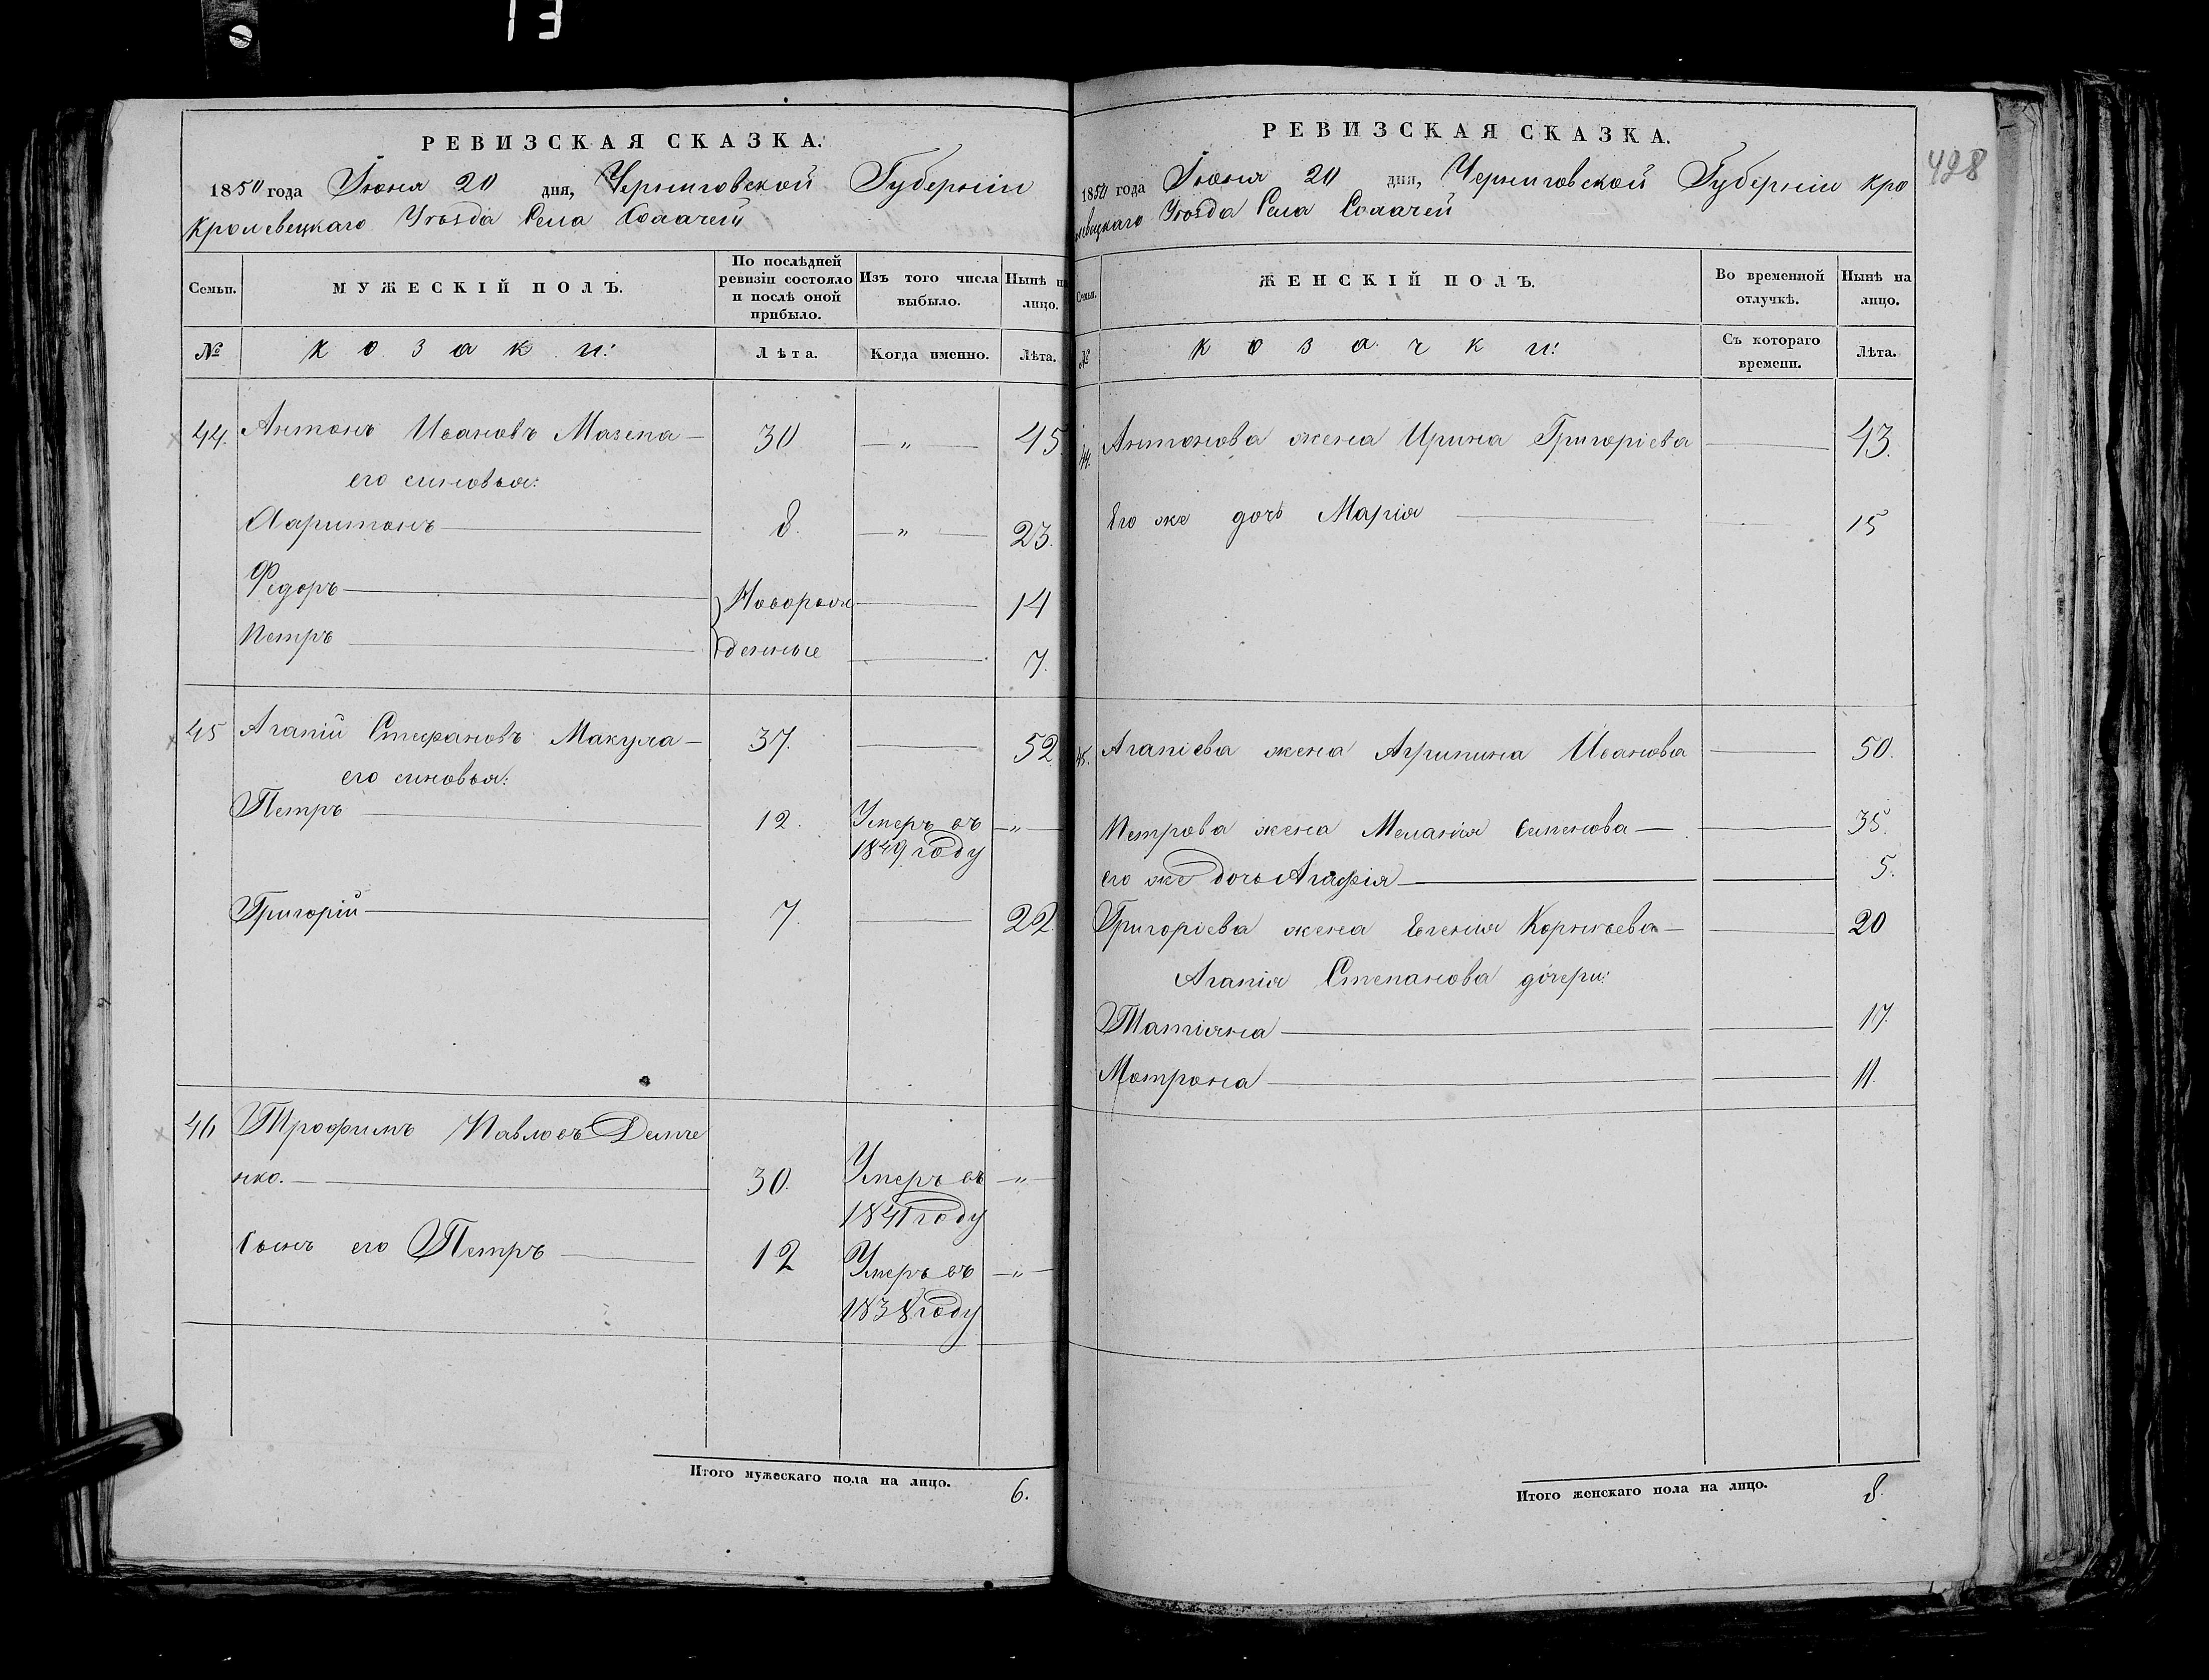 13
РЕВИЗСКАЯ СКАЗКА.
1850 года Июня 20 дня, Черниговской Губерніи
Кролевецкаго Уѣзда Села
Семьи.
МУЖЕСКІЙ ПОЛЪ.
По послѣдней
ревизіи состояло
и послѣ оной
прибыло.
Изъ того числа
выбыло.
Нынѣ на
лицо.
№
Козаки:
Лѣта.
Когда именно.
Лѣта.
44. Антонъ Ивановъ Мазепа — 30 — „ — 45.
его сыновья:
Харитонъ — 8. — „ — 23.
Федоръ — Новорож — 14
Петръ — денные — 7.
45 Агапій Стефановъ Макула — 37. — 52.
его сыновья:
Петръ — 12. Умеръ въ — „ —
1849 году
Григорій — 7. — 22.
46 Трофимъ Павловъ Демче
нко. — 30. Умеръ въ — „ —
1841 году
Сынъ его Петръ — 12 Умеръ въ — „ —
1838 году
Итого мужескаго пола на лицо. 6.
428
РЕВИЗСКАЯ СКАЗКА.
1850 года Июня 20 дня, Черниговской Губерніи Кро
левецкаго Уѣзда Села
Семьи.
ЖЕНСКІЙ ПОЛЪ.
Во временной
отлучкѣ.
Нынѣ на
лицо.
№
Козачки:
Съ котораго
времени.
Лѣта.
44. Антонова жена Ирина Григоріева — 43.
Его же дочь Марія — 15
45. Агапіева жена Агрипина Иванова — 50.
Петрова жена Меланія Семенова — 35.
его же дочь Агафія — 5.
Григоріева жена Евгенія Корнѣева — 20
Агапія Степанова дочери:
Татіяна — 17.
Мотрона — 11.
Итого женскаго пола на лицо. 8.